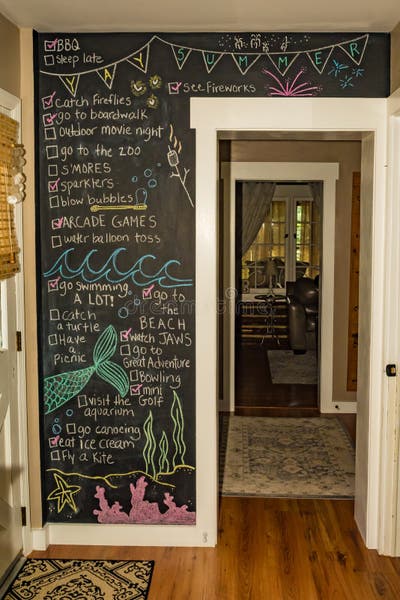 BBQ
Sleep late
YAY SUMMER
See Fireworks
Catch fireflies
go to boardwalk
outdoor movie night
go to the zoo
S'MORES
sparklers
blow bubbles
ARCADE GAMES
water balloon toss
go swimming
A LOT!
Catch
a turtle
Have
a
Picnic
go to
the
BEACH
Watch JAWS
go to
Great Adventure
Bowling
mini
Golf
visit the
aquarium
go canoeing
eat ice cream
Fly a Kite
dreamstime